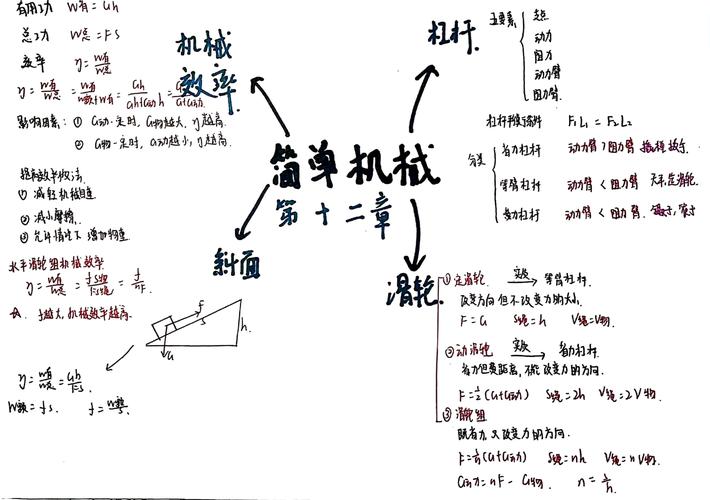 有用功 W有 = Gh
总功 W总 = FS
效率 η = W有/W总
η = W有/W总 = W有/W额+W有 = Gh/Gh+G动h = G/G+G动
影响因素: ① G动一定时, G物越大, η越高.
② G物一定时, G动越小, η越高.
提高效率办法:
① 减轻机械自重
② 减小摩擦
③ 允许情况下增加物重
水平滑轮组机械效率
η = W有/W总 = fS物/FS绳 = f/nF
f越大, 机械效率越高.
η = W有/W总 = Gh/FS.
W额 = fs. f = W额/S.
机械
效率
简单机械
第十二章
斜面
f
s
h
G
杠杆
五要素
支点
动力
阻力
动力臂
阻力臂
杠杆平衡条件 F₁L₁ = F₂L₂
分类
省力杠杆 动力臂 > 阻力臂
等臂杠杆 动力臂 < 阻力臂 天平, 定滑轮.
费力杠杆 动力臂 < 阻力臂
滑轮
① 定滑轮 实质 等臂杠杆.
改变方向但不改变力的大小.
F = G S绳 = h V绳 = V物.
② 动滑轮 实质 省力杠杆.
省力但费距离, 不能改变力的方向.
F = 1/2 (G+G动) S绳 = 2h V绳 = 2V物
③ 滑轮组
既省力又改变力的方向.
F = 1/n (G+G动) S绳 = nh V绳 = nV物.
G动 = nF - G物 n = s/h.